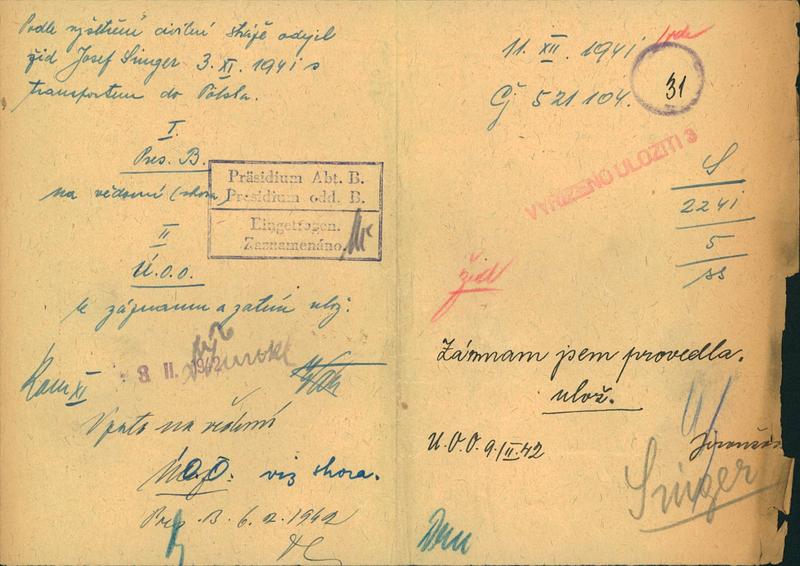 Podle vyšetření civilní stráže odejel
žid Josef Singer 3. XI. 1941 s
transportem do Polska.
I.
Pres. B.
na vědomí (shora)
Präsidium Abt. B.
Presidium odd. B.
Eingetragen.
Zaznamenáno.
II
Ú.O.O.
k záznamu a zatím ulož.
- 8. II. 1942
Vzato na vědomí
viz shora.
Pres. B. 6. 2. 1942
11. XII. 1941
31
Čj 521 104.
VYŘÍZENO ULOŽITI 3
S
2241
5
žid
Záznam jsem provedla.
ulož.
U.O.O. 9/II.42
Singer